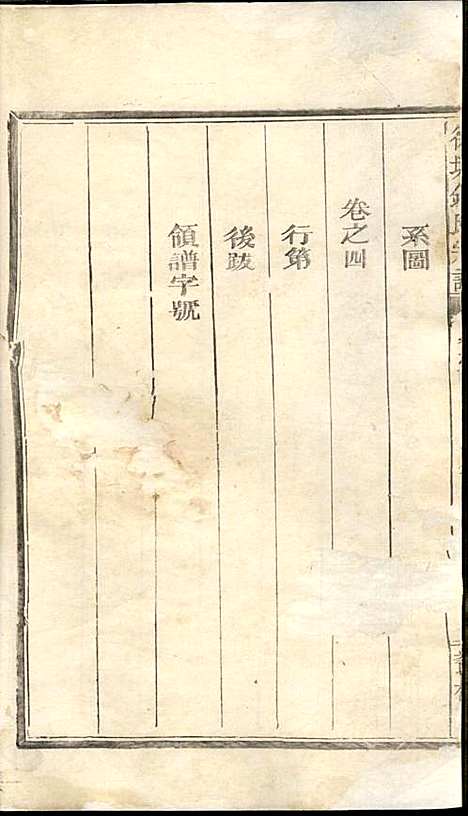 系圖
卷之四
行第
後跋
領譜字號